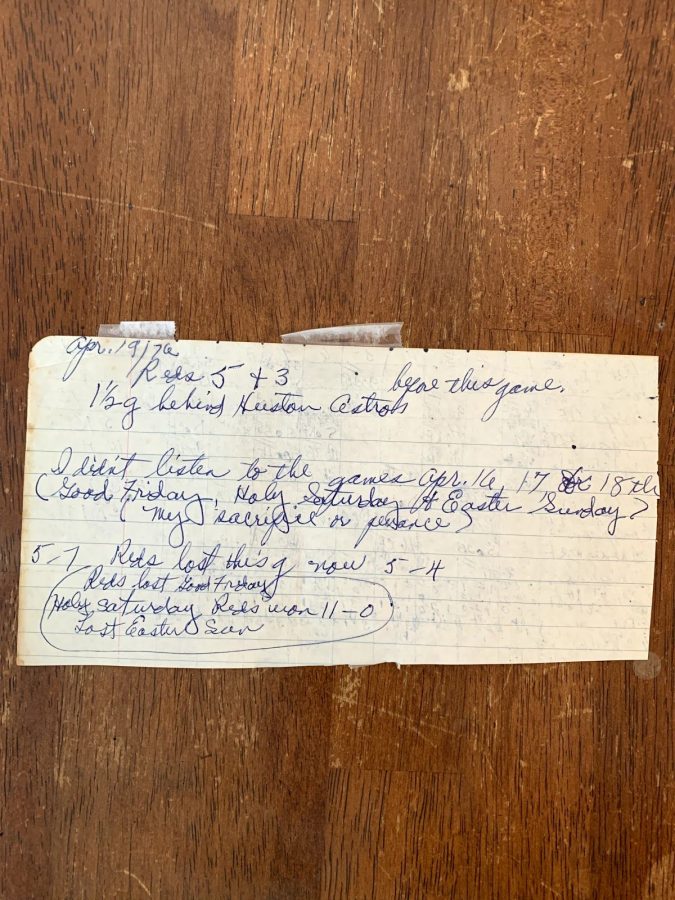 Apr. 19/76
Reds 5 + 3 before this game.
1½g behind Huston Astros
I didn't listen to the games Apr. 16, 17, & 18th
(Good Friday, Holy Saturday & Easter Sunday)
(My sacrifice or penance)
5-7 Reds lost this g now 5-4
Reds lost Good Friday
Holy Saturday Reds won 11-0
Lost Easter Sun